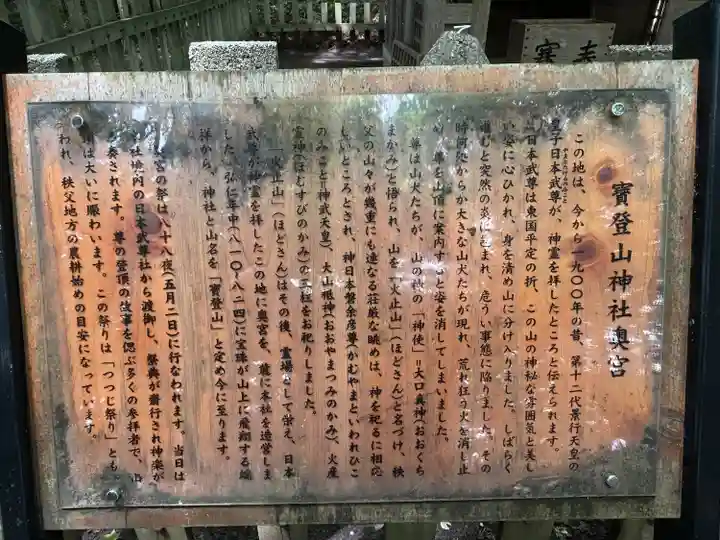 寶登山神社奥宮
この地は、今から一九〇〇年の昔、第十二代景行天皇の
皇子日本武尊が、神霊を拝したところと伝えられます。
やまとたけるのみこと
日本武尊は東国平定の折、この山の神秘な雰囲気と美し
い姿に心ひかれ、身を清め山に分け入りました。しばらく
進むと突然の炎に包まれ、危うい事態に陥りました。その
時何処からか大きな山犬たちが現れ、荒れ狂う火を消し止
め、尊を山頂に案内すると姿を消してしまいました。
尊は山犬たちが、山の神の「神使」=大口真神(おおくち
まかみ)と悟られ、山を「火止山」(ほどさん)と名づけ、秩
父の山々が幾重にも連なる荘厳な眺めは、神を祀るに相応
しいところとされ、神日本磐余彦尊(かむやまといわれひこ
のみこと=神武天皇)、大山祗神(おおやまつみのかみ)、火産
霊神(ほむすびのかみ)の三柱をお祀りしました。
「火止山」(ほどさん)はその後、霊場として栄え、日本
武尊が神霊を拝したこの地に奥宮を、麓に本社を造営しま
した。弘仁年中(八一〇〜八二四)に宝珠が山上に飛翔する端
祥から、神社と山名を「寶登山」と定め今に至ります。
宮の祭は八十八夜(五月二日)に行なわれます。当日は
社境内の日本武尊社から渡御し、祭典が斎行され神楽が
奏されます。尊の登頂の故事を偲ぶ多くの参拝者で、山
頂は大いに賑わいます。この祭りは「つつじ祭り」とも
われ、秩父地方の農耕始めの目安になっています。